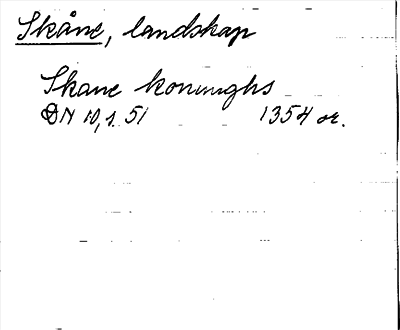 Skåne, landskap
Skane konunghs
DN 10,1 51 1354 or.